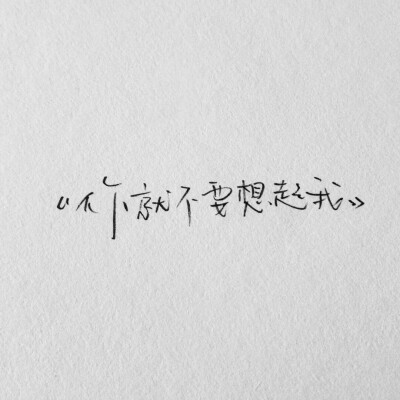 “你就不要想起我”